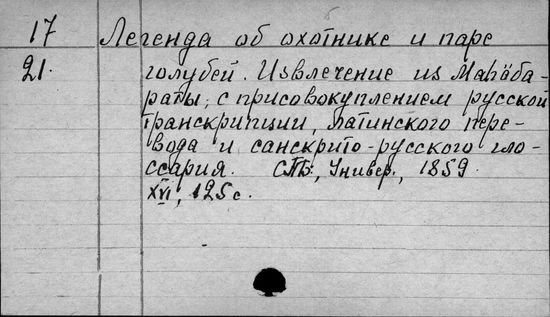 17 Легенда об охотнике и паре
21. голубей. Извлечение из Магаба-
раты, с присовокуплением русской
транскрипции, латинского пере-
вода и санскрито-русского гло-
ссария. СПб, Универ., 1859.
XVI, 125 с.